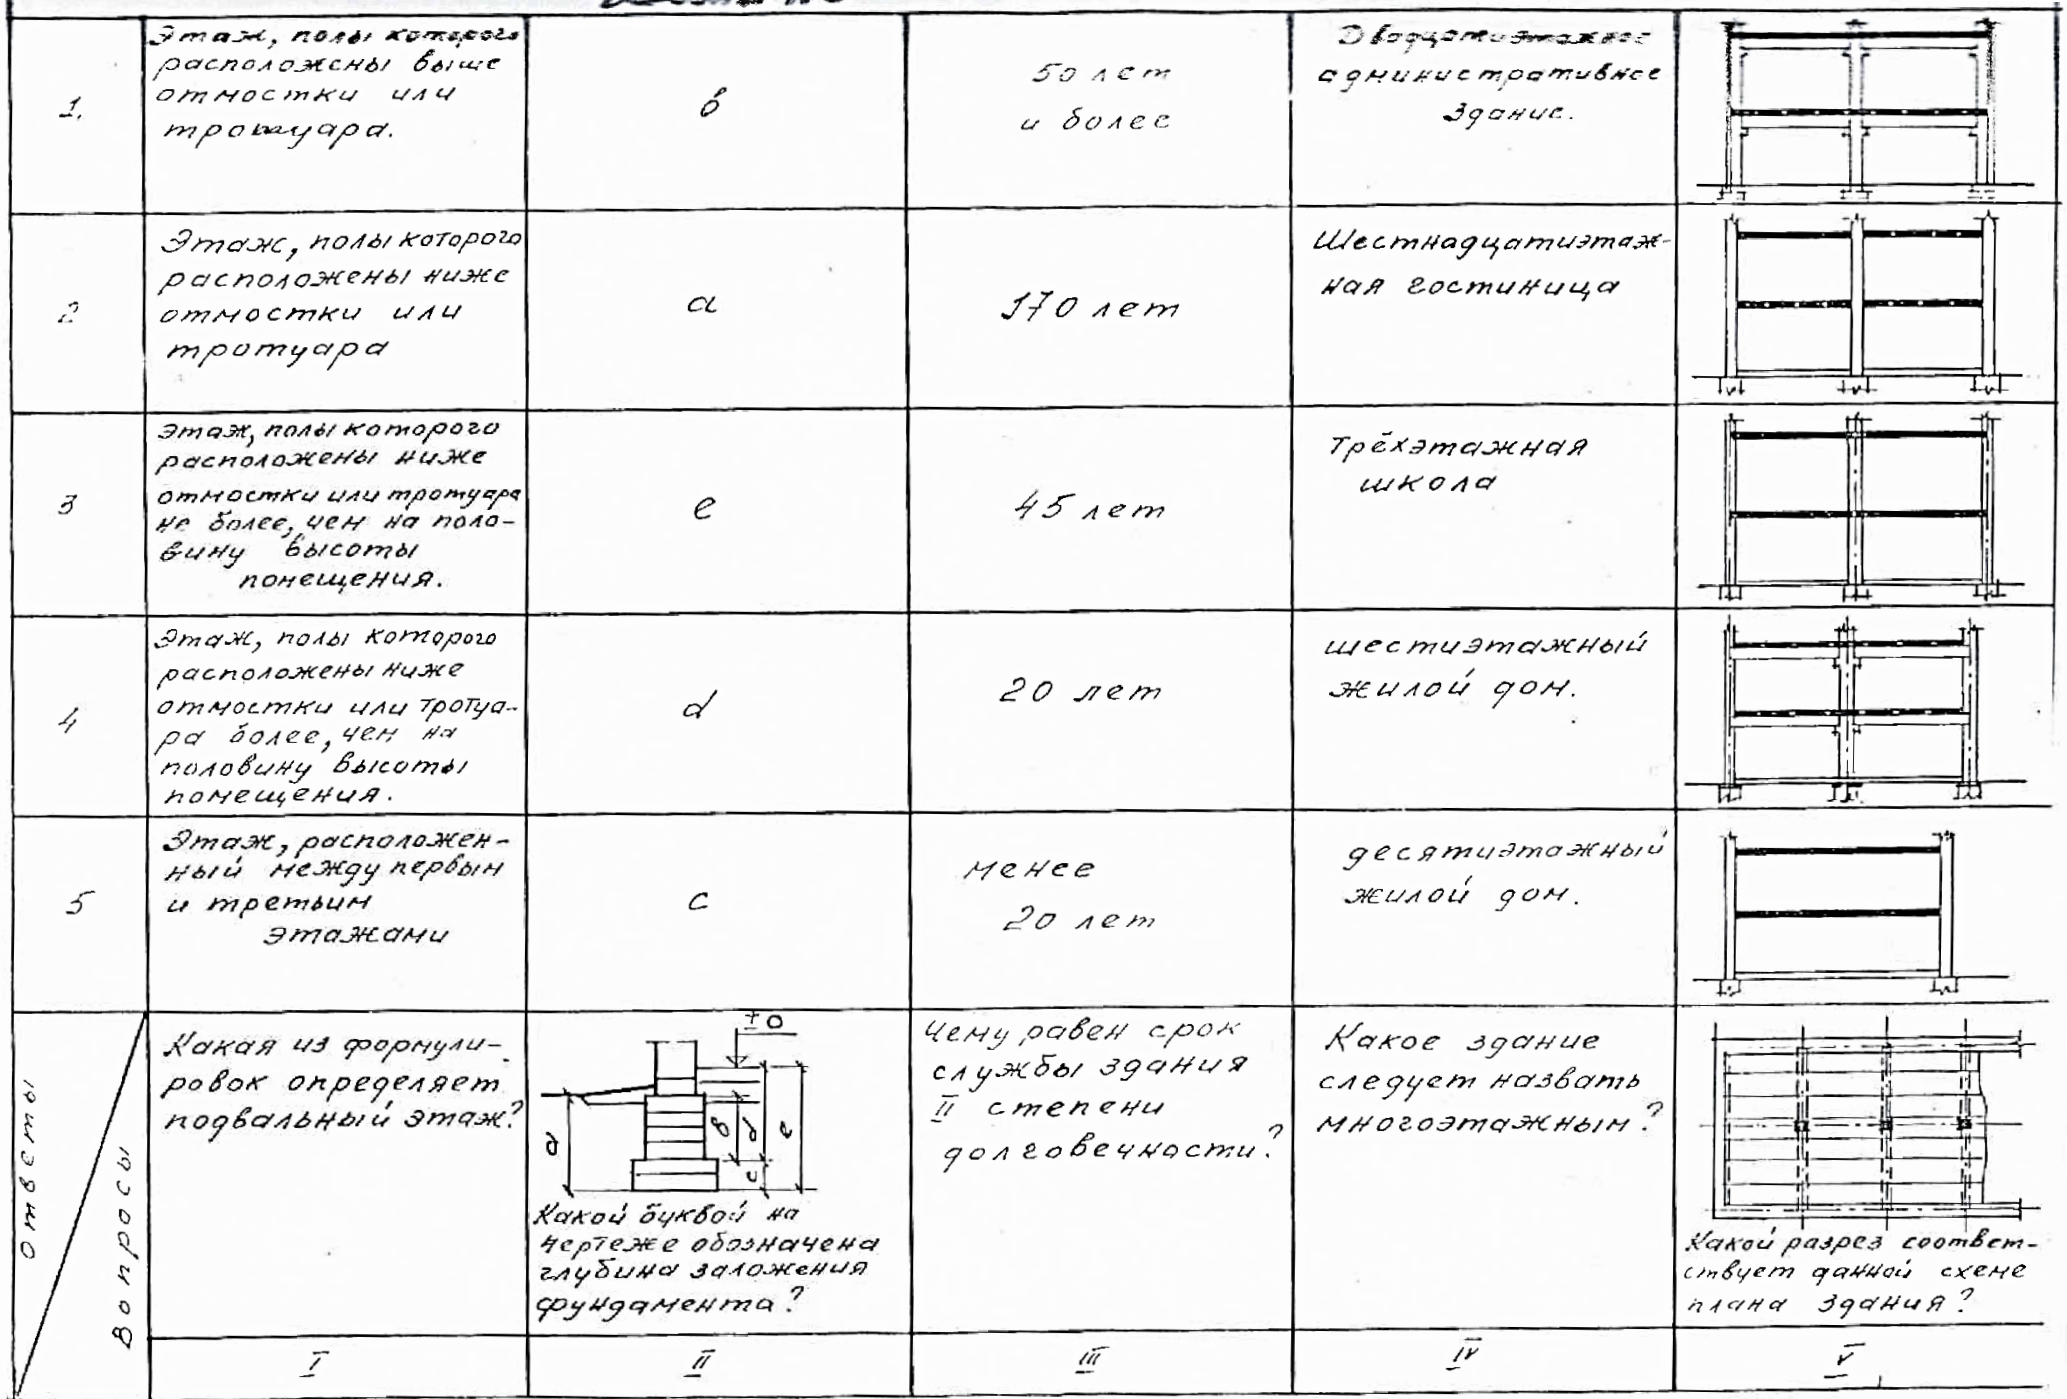 1.
Этаж, полы которого
расположены выше
отмостки или
тротуара.
в
50 лет
и более
Двадцатиэтажное
административное
здание.
2
Этаж, полы которого
расположены ниже
отмостки или
тротуара
а
170 лет
Шестнадцатиэтаж-
ная гостиница
3
Этаж, полы которого
расположены ниже
отмостки или тротуара
не более, чем на поло-
вину высоты
помещения.
е
45 лет
Трёхэтажная
школа
4
Этаж, полы которого
расположены ниже
отмостки или тротуа-
ра более, чем на
половину высоты
помещения.
d
20 лет
шестиэтажный
жилой дом.
5
Этаж, расположен-
ный между первым
и третьим
этажами
с
менее
20 лет
десятиэтажный
жилой дом.
Ответы
Вопросы
Какая из формули-
ровок определяет
подвальный этаж?
±0
а
в
d
е
с
Какой буквой на
чертеже обозначена
глубина заложения
фундамента?
Чему равен срок
службы здания
II степени
долговечности?
Какое здание
следует назвать
многоэтажным?
Какой разрез соответ-
ствует данной схеме
плана здания?
I
II
III
IV
V